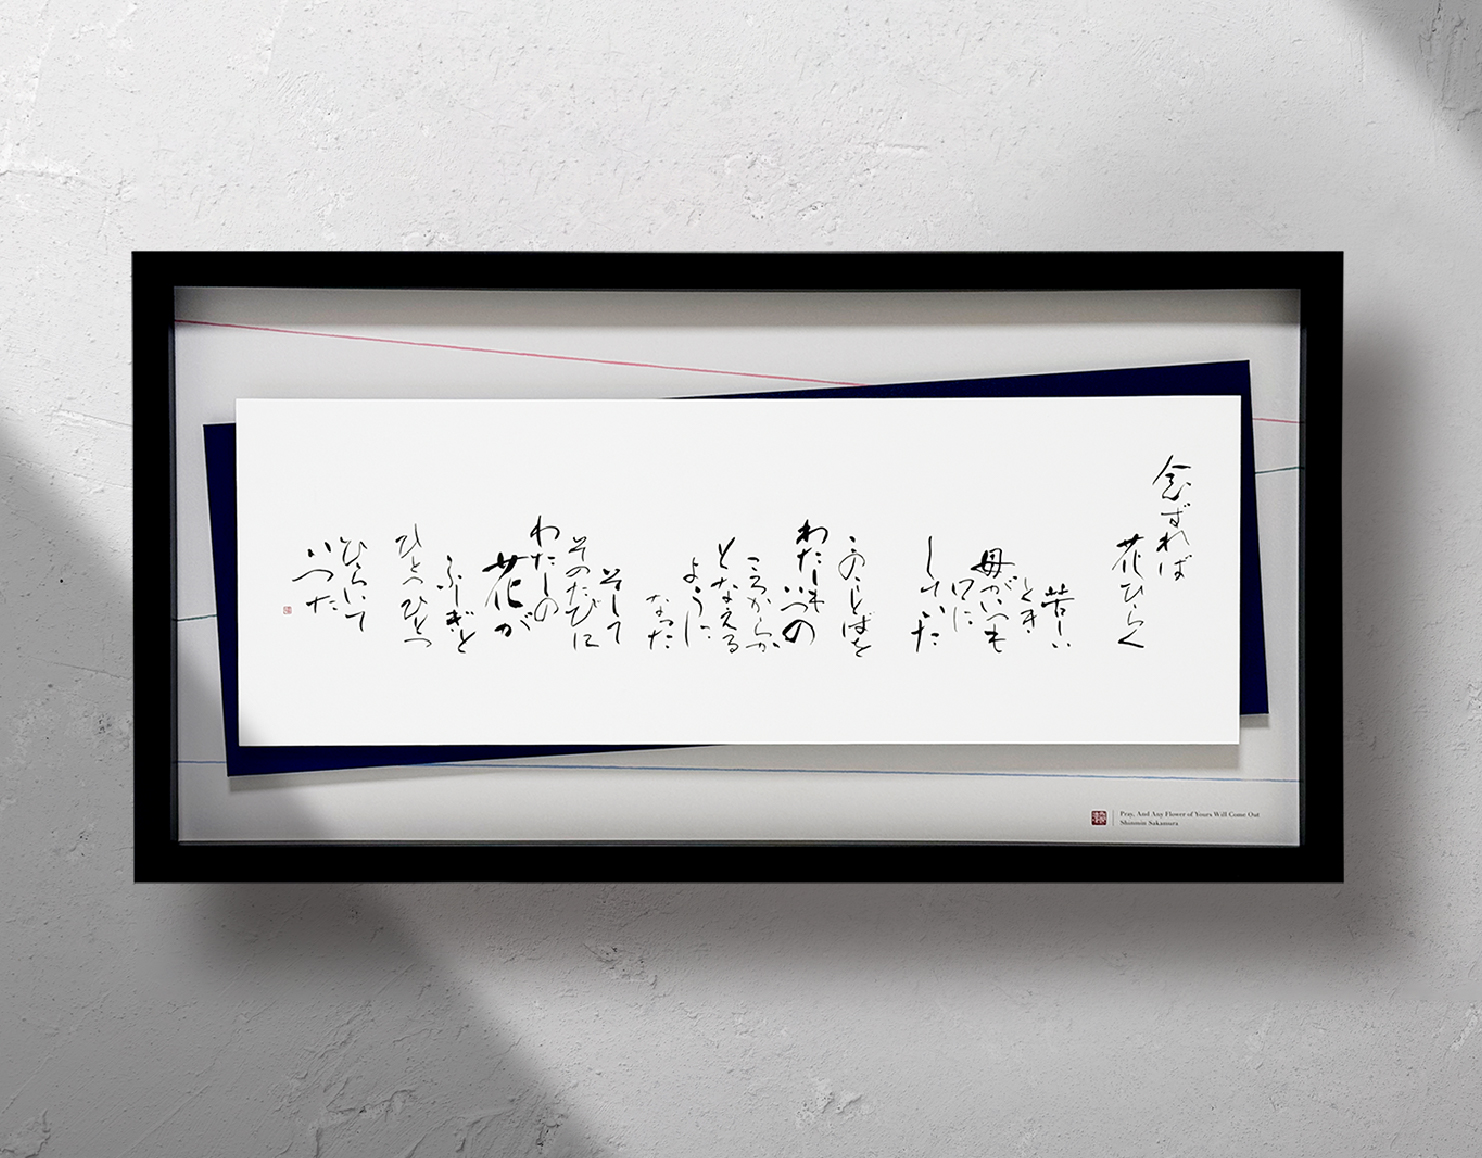 念ずれば
花ひらく
苦しい
とき
母がいつも
口に
していた
このことばを
わたしも
いつの
ころからか
となえる
ように
なった
そして
そのたびに
わたしの
花が
ふしぎと
ひとつひとつ
ひらいて
いった
Pray, And Any Flower of Yours Will Come Out
Shinmin Sakamura